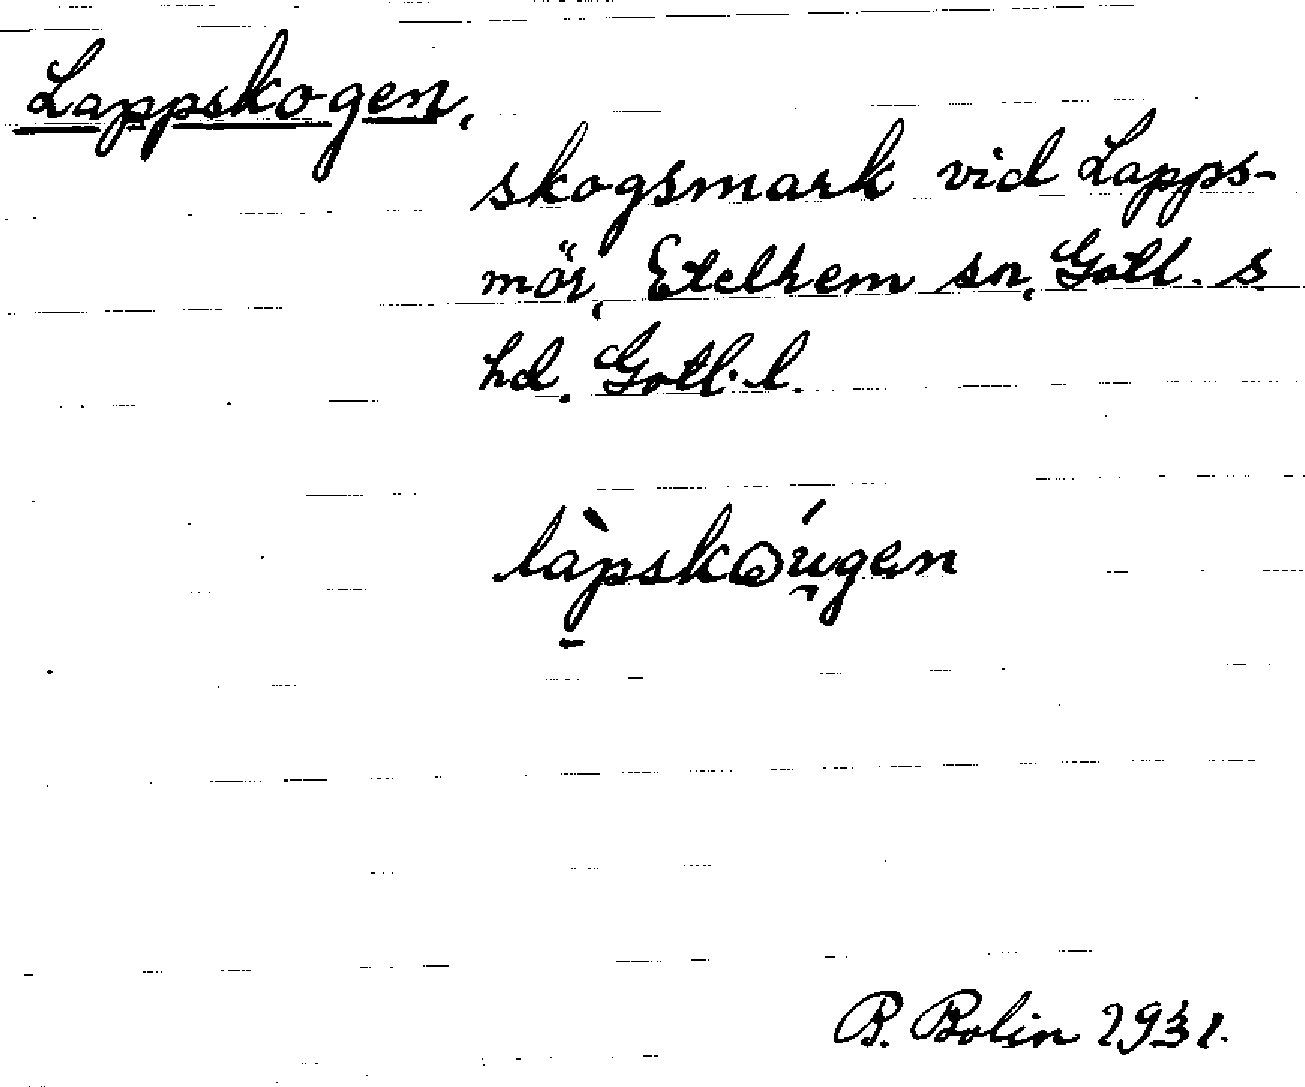 Lappskogen,
skogsmark vid Lapps-
mör, Etelhem sn, Gotl. s.
hd. Gotl. l.
B. Bolin 1931.